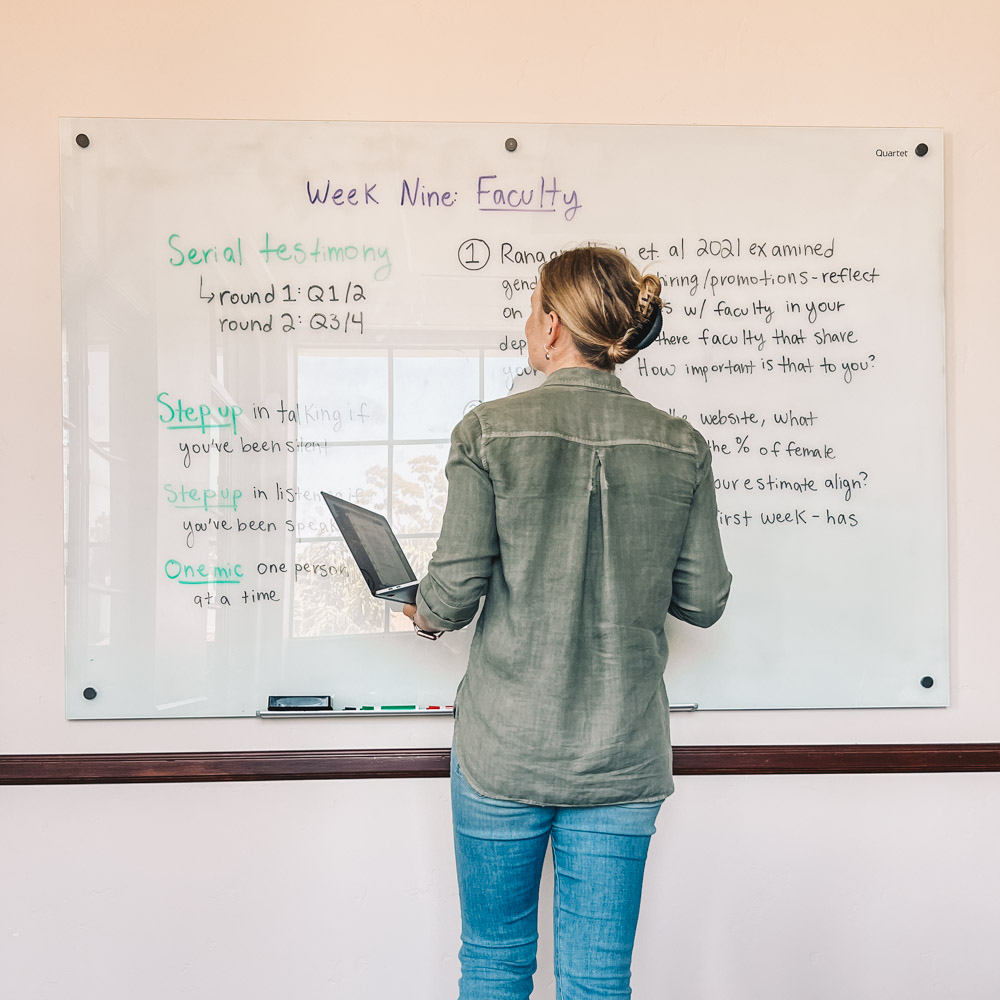 Quartet
Week Nine: Faculty
Serial testimony
↳round 1: Q1/2
round 2: Q3/4
Step up in talking if
you've been silent
Step up in listening if
you've been speak
One mic one person
at a time
① et. al 2021 examined
hiring/promotions-reflect
on w/ faculty in your
faculty that share
How important is that to you?
website, what
the % of female
estimate align?
week - has